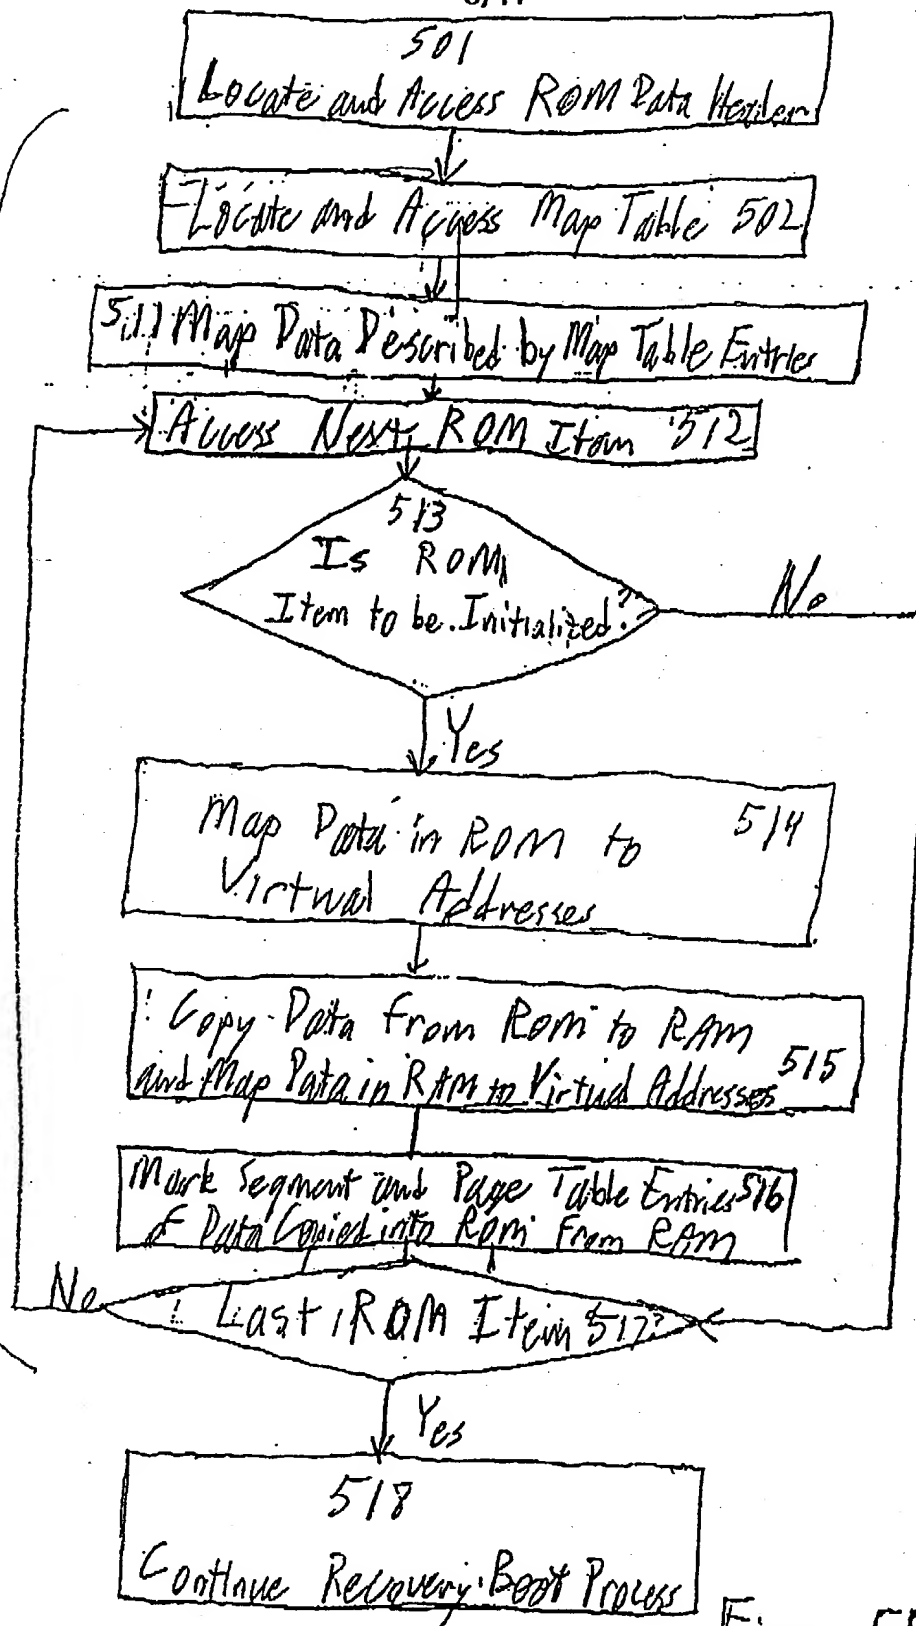 501
Locate and Access ROM Data Header
Locate and Access Map Table 502
511 Map Data Described by Map Table Entries
Access Next ROM Item 512
513
Is ROM
Item to be Initialized?
No
Yes
Map Data in ROM to 514
Virtual Addresses
Copy Data from Rom to RAM
and Map Data in RAM to Virtual Addresses 515
Mark Segment and Page Table Entries 516
of Data Copied into Rom From RAM
No
Last ROM Item 517?
Yes
518
Continue Recovery Boot Process